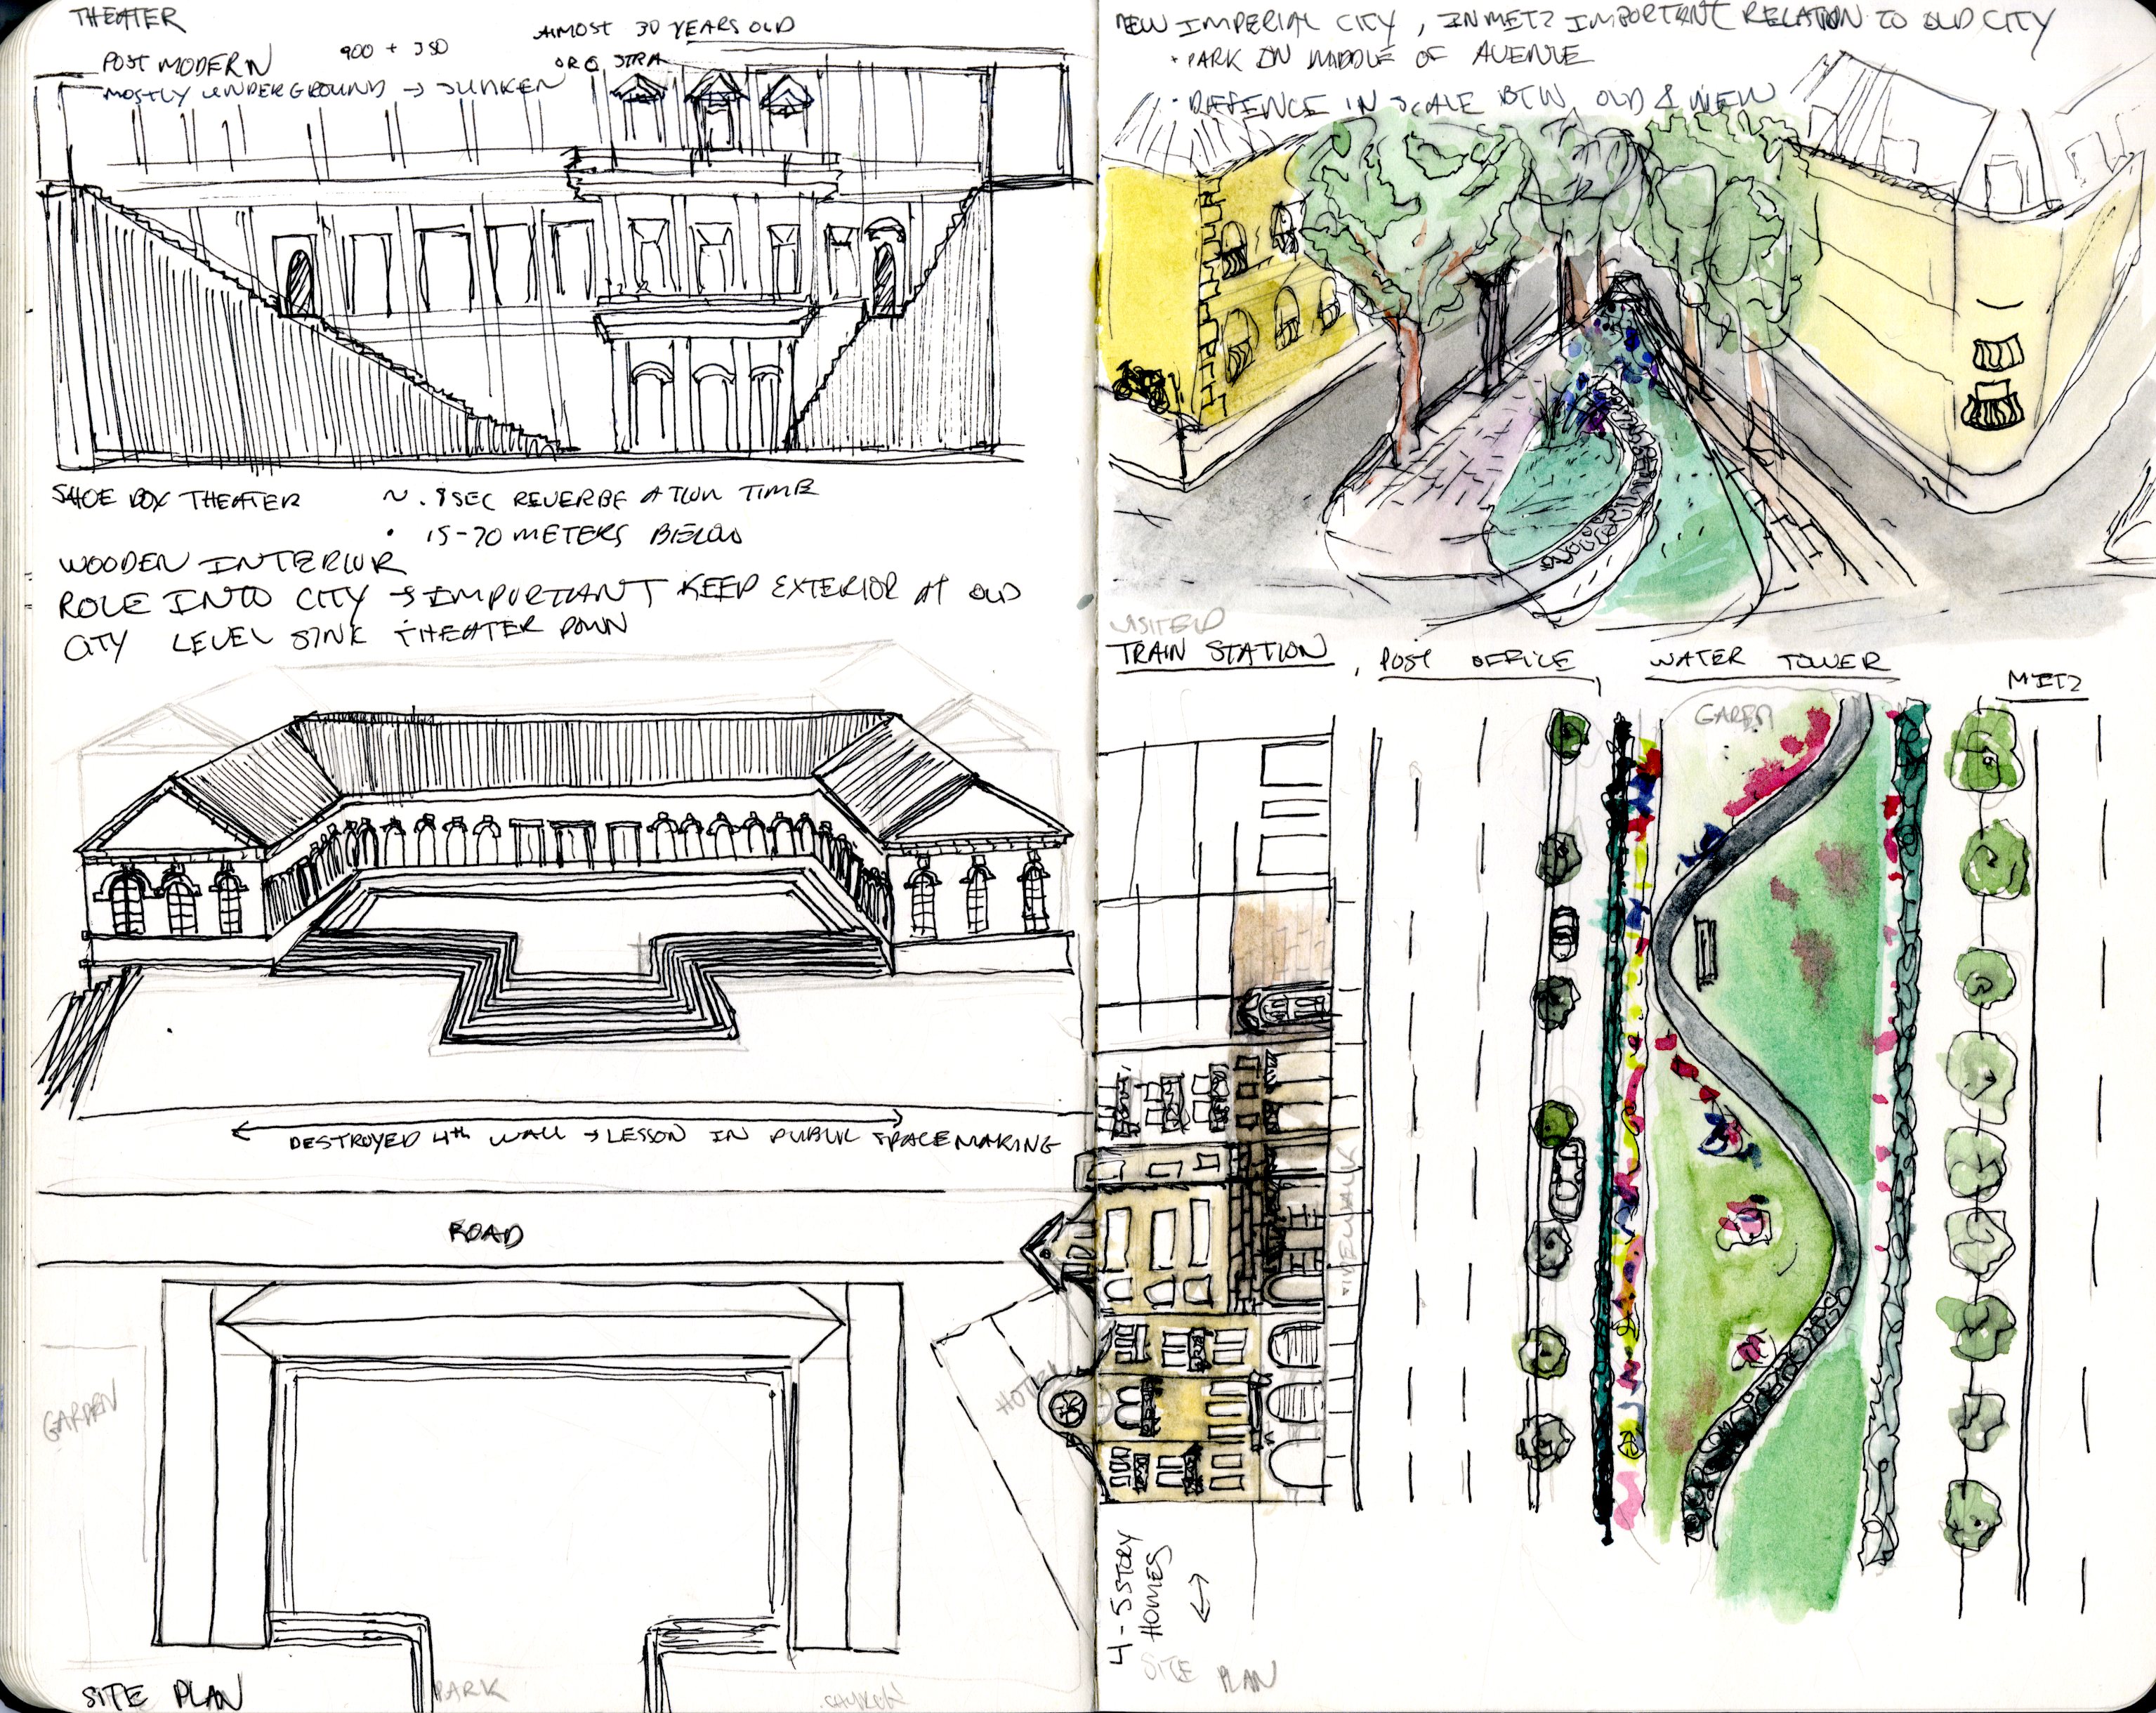 THEATER
POST MODERN
900 + 350
ALMOST 30 YEARS OLD
MOSTLY UNDERGROUND → SUNKEN
SHOE BOX THEATER
~ .8SEC REVERBERATION TIME
• 15-20 METERS BELOW
WOODEN INTERIOR
ROLE INTO CITY → IMPORTANT KEEP EXTERIOR AT OLD
CITY LEVEL SINK THEATER DOWN
DESTROYED 4th WALL → LESSON IN PUBLIC SPACEMAKING
ROAD
GARDEN
HOTEL
SITE PLAN
PARK
CHURCH
NEW IMPERIAL CITY, IN METZ IMPORTANT RELATION TO OLD CITY
• PARK IN MIDDLE OF AVENUE
• DIFFENCE IN SCALE BTW OLD & NEW
VISITED
TRAIN STATION, POST OFFICE, WATER TOWER
METZ
GARDEN
SIDEWALK
4-5 STORY
HOMES
SITE PLAN